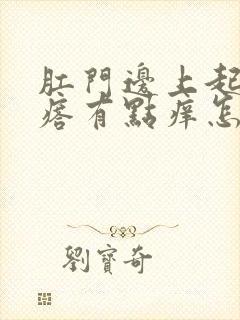 肛門邊上起
瘩有點痒怎
劉寶奇